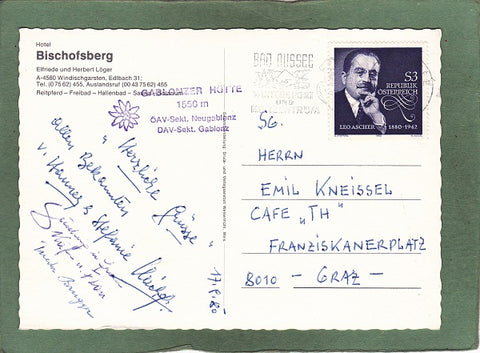 Hotel
Bischofsberg
Elfriede und Herbert Löger
A-4580 Windischgarsten, Edlbach 31;
Tel. (0 75 62) 455, Auslandsruf (00 43 75 62) 455
Reitpferd – Freibad – Hallenbad – Sauna
GABLONZER HÜTTE
1550 m
ÖAV-Sekt. Neugablonz
DAV-Sekt. Gablonz
BAD AUSSEE
UND
S3
REPUBLIK
ÖSTERREICH
LEO ASCHER 1880-1942
Sg.
HERRN
EMIL KNEISSEL
CAFE „TH"
FRANZISKANERPLATZ
8010 – GRAZ –
„Herzliche Grüsse"
allen Bekannten
v. Hannes & Stefanie
17.8.80